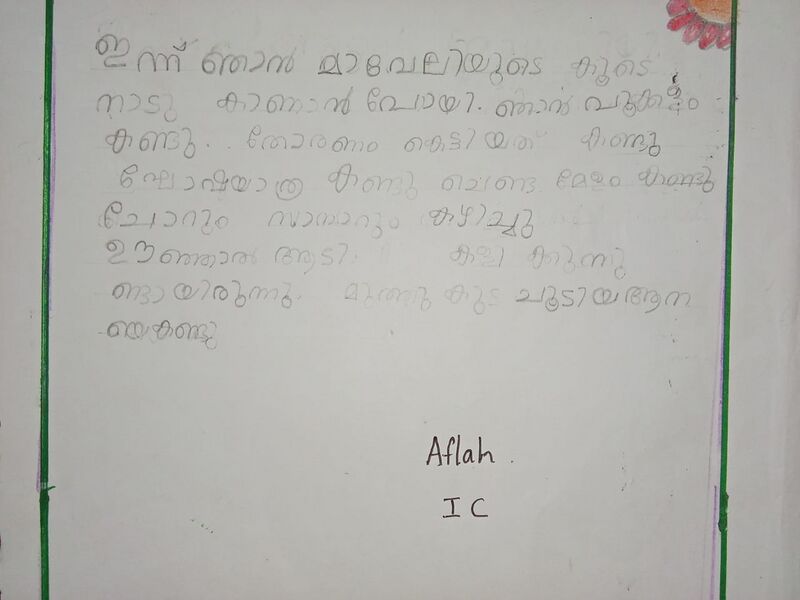 ഇന്ന് ഞാൻ മാവേലിയുടെ കൂടെ
നാടു കാണാൻ പോയി. ഞാൻ പൂക്കളം
കണ്ടു. തോരണം കെട്ടിയത് കണ്ടു
ഘോഷയാത്ര കണ്ടു ചെണ്ട മേളം കണ്ടു
ചോറും സാമ്പാറും കഴിച്ചു
ഊഞ്ഞാൽ ആടി.
ണ്ടായിരുന്നു. മുത്തു കുട ചൂടിയ ആന
യെകണ്ടു
Aflah.
I C